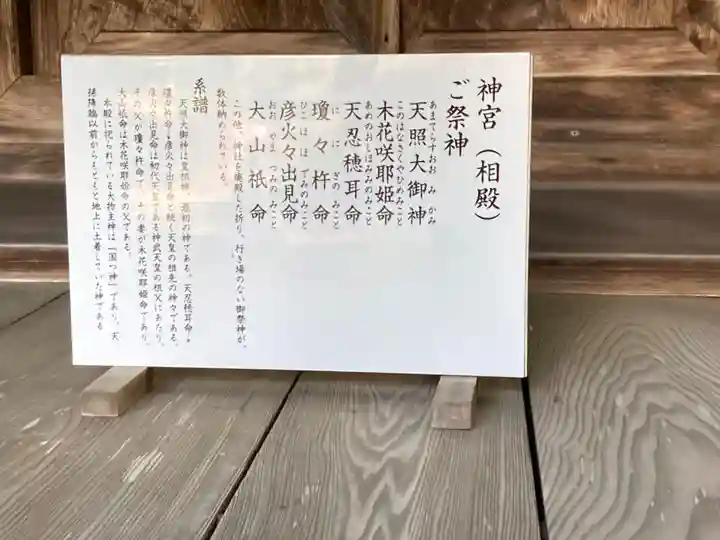 神宮（相殿）
ご祭神
あまてらすおおみかみ
天照大御神
このはなさくやひめみこと
木花咲耶姫命
あめのおしほみみのみこと
天忍穂耳命
ににぎのみこと
瓊々杵命
ひこほほでみのみこと
彦火々出見命
おおやまつみのみこと
大山祇命
この他、神社を廃殿した折り、行き場のない御祭神が、
数体納められている。
系譜
天照大御神は皇祖神、最初の神である。天忍穂耳命・
瓊々杵命・彦火々出見命と続く天皇の祖先の神々である。
彦火々出見命は初代天皇である神武天皇の祖父にあたり、
その父が瓊々杵命で、その妻が木花咲耶姫命であり、
大山祇命は木花咲耶姫命の父である。
本殿に祀られている大物主神は「国つ神」であり、天
孫降臨以前からもともと地上に土着していた神である